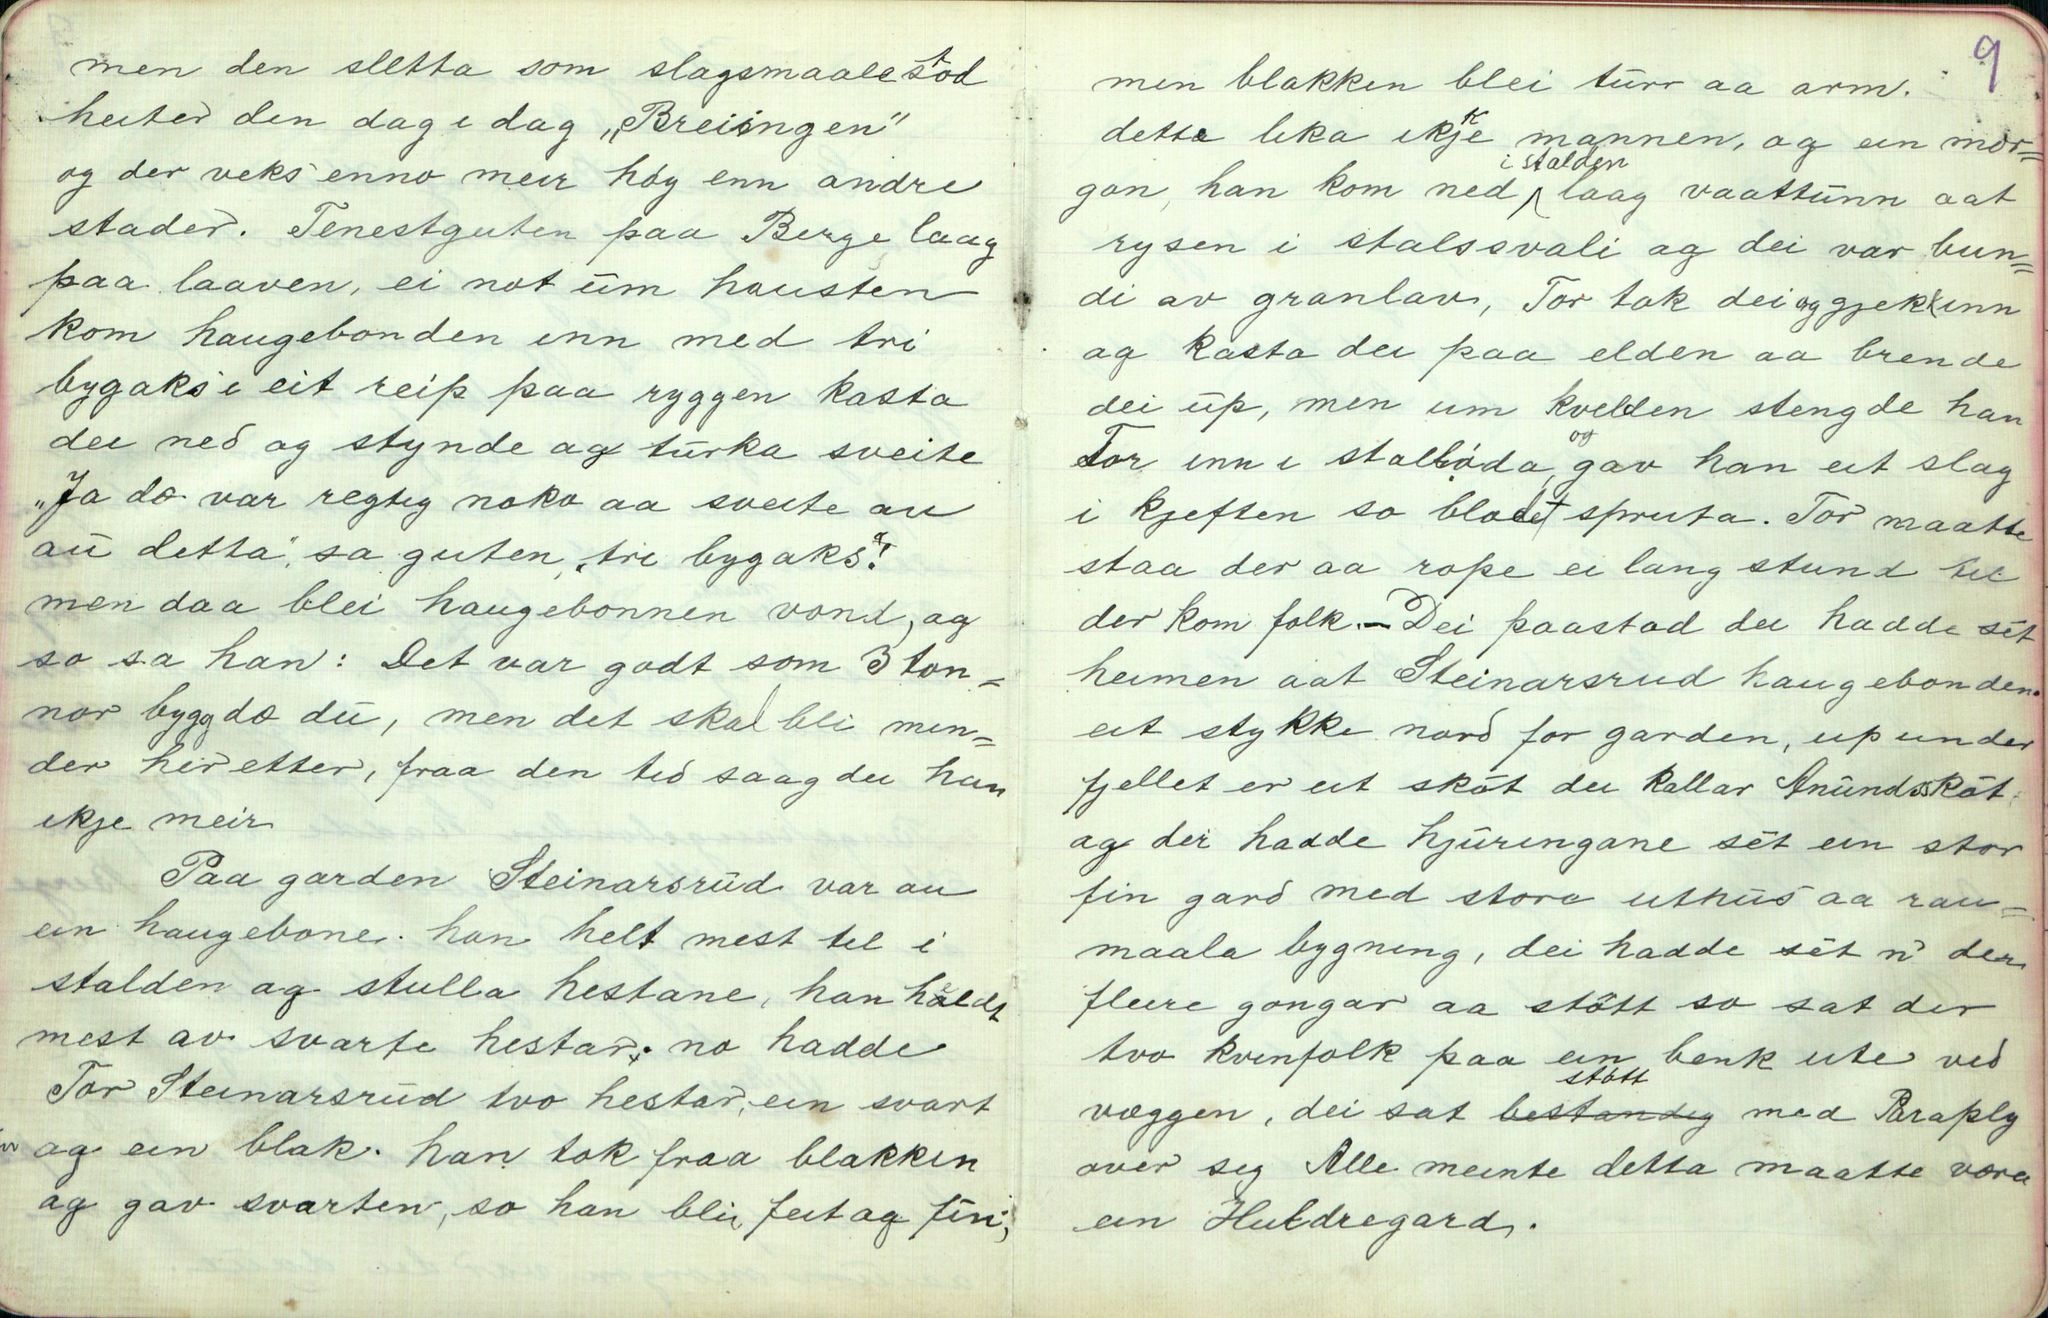 men den sletta som slagsmaale stod
heiter den dag i dag „Breiingen"
og der veks enno meir høg enn andre
stader. Tenestguten paa Berge laag
paa laaven, ei not üm hausten
kom haugebonden inn med tri
bygaks i eit reip paa ryggen kasta
dei ned og stynde og türka sveite
„Ja dæ var regtig noko aa sveite au
aü detta", sa guten, „tri bygaks"!
men daa blei haugebonnen vond, og
so sa han: Det var godt som 3 ton=
nor bygg dæ dü, men det skal bli min=
der heretter, fraa den tid saag dei han
ikje meir
Paa garden Steinarsrüd var au
ein haugebone. han helt mest til i
stalden og stulla hestane, han holdt
mest av svarte hestar; no hadde
Tor Steinarsrüd tvo hestar, ein svart
og ein blak. han tok fraa blakken
og gav svarten, so han blei feit og fin;
9
men blakken blei türr aa arm.
dette lika ikkje mannen, og ein mor=
i stalden
gon, han kom ned laag vaattünn aat
rysen i stalssvali og dei var bun=
di av granlav, Tor tok dei og gjekk inn
og kasta dei paa elden aa brende
dei üp, men um kvelden stengde han
Tor inn i stallbóda, og gav han eit slag
i kjeften so blodet spruta. Tor maatte
staa der aa rope ei lang stund til
der kom folk. – Dei paastod dei hadde sét
heimen aat Steinarsrud haugebonden.
eit stykke nord for garden, up under
fjellet er eit sköt dei kallar Anündssköt
og der hadde hjüringane sét ein stor
fin gard med store uthüs aa rau=
maala bygning, dei hadde sét n' der
fleire gongar aa stött so sat der
tvo kvinfolk paa ein benk ute ved
stött
væggen, dei sat bestandig med Paraply
over seg Alle meinte detta maatte vera
ein Huldregard.